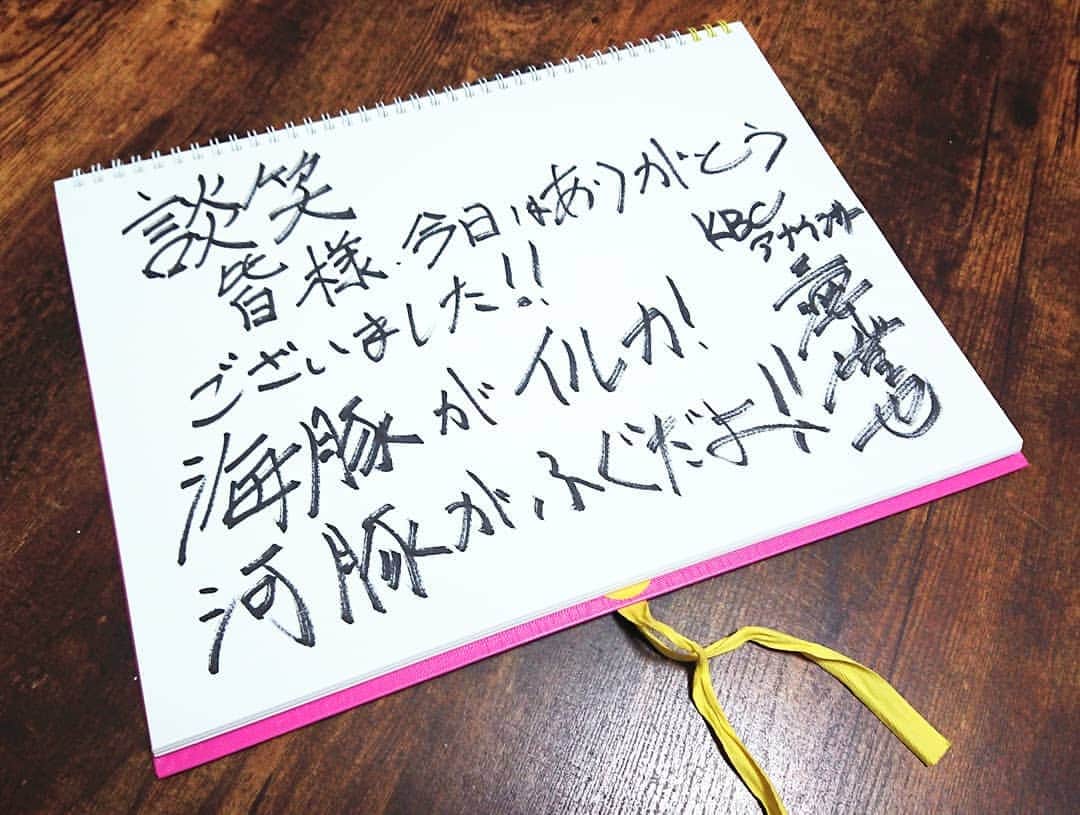 談笑
皆様、今日はありがとう
ございました!!
海豚がイルカ!
河豚が、ふぐだよ!!
KBC
アナウンサー